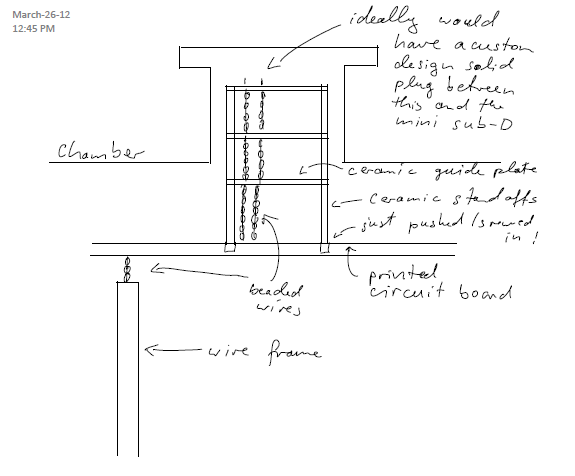 March-26-12
12:45 PM
ideally would
have a custom
design solid
plug between
this and the
mini sub-D
chamber
ceramic guide plate
ceramic standoffs
just pushed/screwed
in!
printed
circuit board
beaded
wires
wire frame